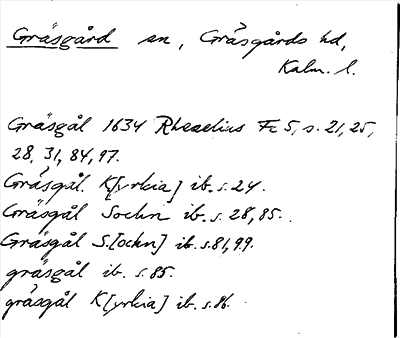 Gräsgård sn, Gräsgårds hd,
Kalm. l.
Gräsgål 1634 Rhezelius Fc 5, s. 21, 25,
28, 31, 84, 97.
Gräsgål K[yrkia] ib. s. 24.
Gräsgål Sochn ib. s. 28, 85.
Gräsgål S[ochn] ib. s. 81, 99.
gräsgål ib. s. 85.
gräsgål K[yrkia] ib. s. 86.